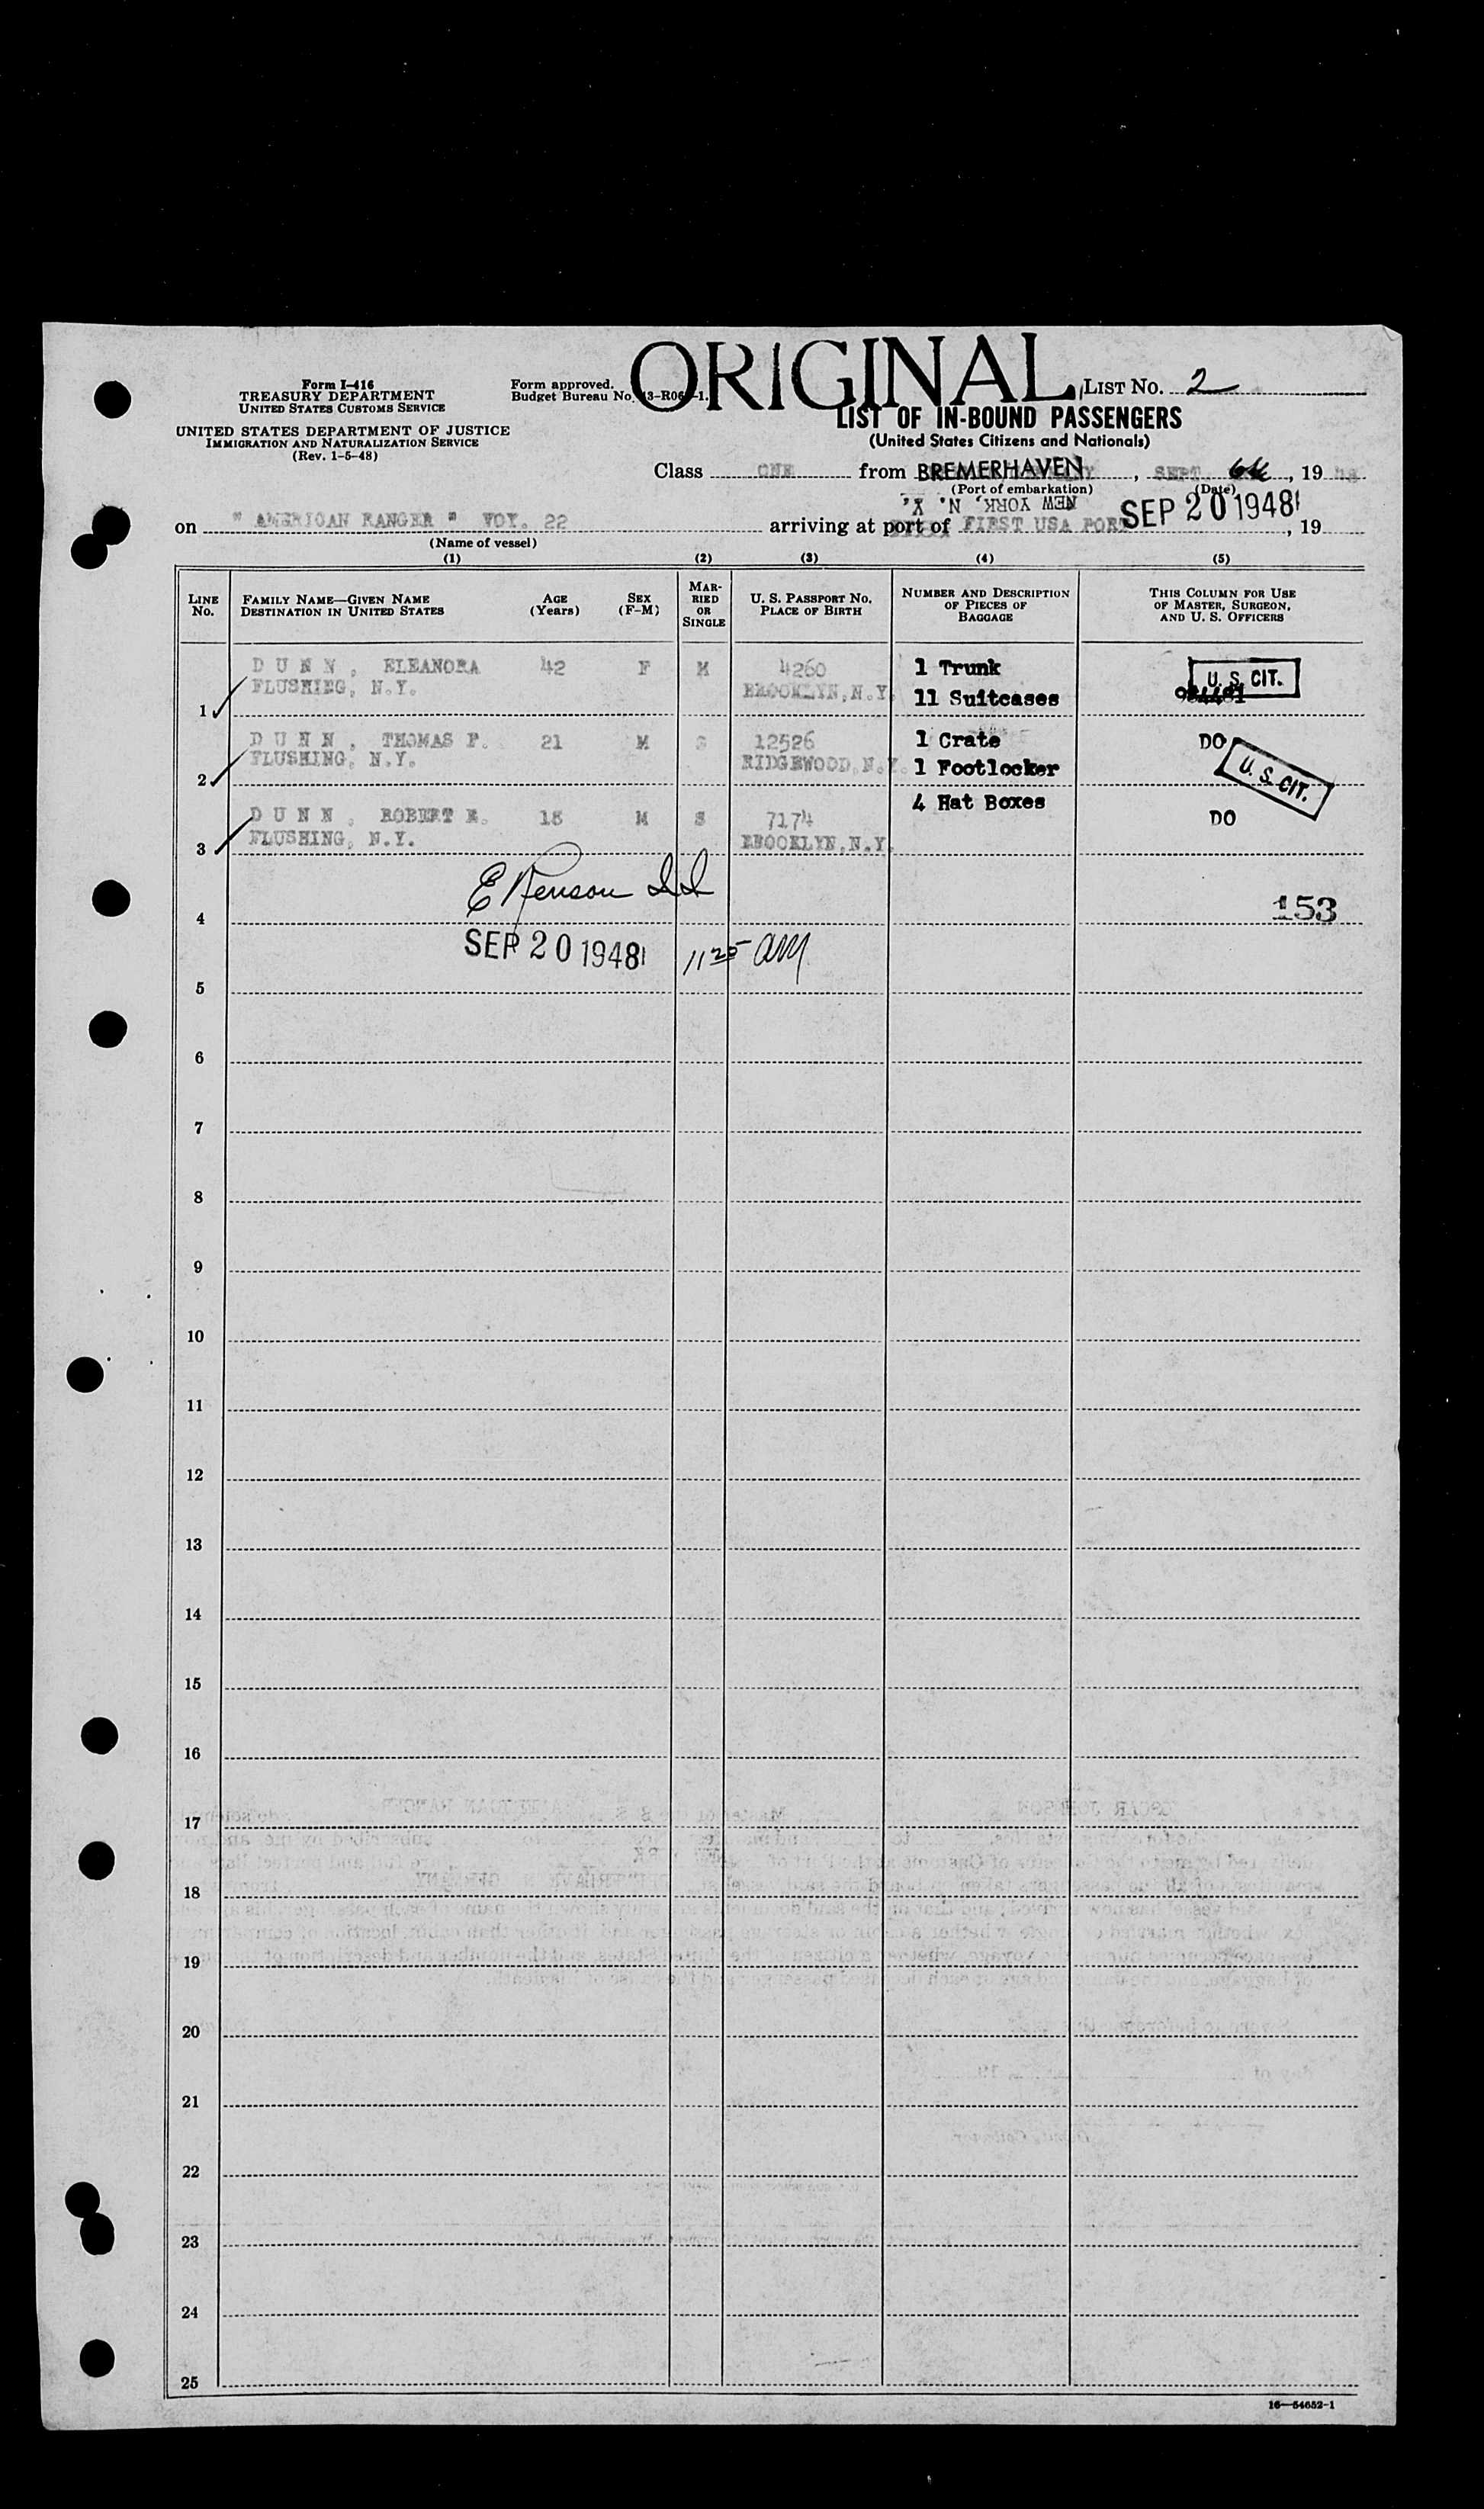 ORIGINAL
Form I-416
TREASURY DEPARTMENT
UNITED STATES CUSTOMS SERVICE
UNITED STATES DEPARTMENT OF JUSTICE
IMMIGRATION AND NATURALIZATION SERVICE
(Rev. 1-5-48)
Form approved.
Budget Bureau No.
LIST No. 2
LIST OF IN-BOUND PASSENGERS
(United States Citizens and Nationals)
Class ONE from BREMERHAVEN, SEPT , 19
(Port of embarkation) (Date)
NEW YORK, N. Y.
SEP 20 1948
on " AMERICAN RANGER " VOY. 22 arriving at port of FIRST USA PORT , 19
(Name of vessel)
(1) (2) (3) (4) (5)
LINE No. FAMILY NAME—GIVEN NAME DESTINATION IN UNITED STATES AGE (Years) SEX (F-M) MARRIED OR SINGLE U. S. PASSPORT No. PLACE OF BIRTH NUMBER AND DESCRIPTION OF PIECES OF BAGGAGE THIS COLUMN FOR USE OF MASTER, SURGEON, AND U. S. OFFICERS
DUNN, ELEANORA 42 F M 4260 1 Trunk U. S. CIT.
1 FLUSHING, N.Y. BROOKLYN, N.Y. 11 Suitcases
DUNN, THOMAS F. 21 M S 12526 1 Crate DO
2 FLUSHING, N.Y. RIDGEWOOD, N.Y. 1 Footlocker U. S. CIT.
4 Hat Boxes
DUNN, ROBERT 18 M S 7174 DO
3 FLUSHING, N.Y. BROOKLYN, N.Y.
4 153
SEP 20 1948 11 25 AM
5
6
7
8
9
10
11
12
13
14
15
16
17
18
19
20
21
22
23
24
25
16—54652-1